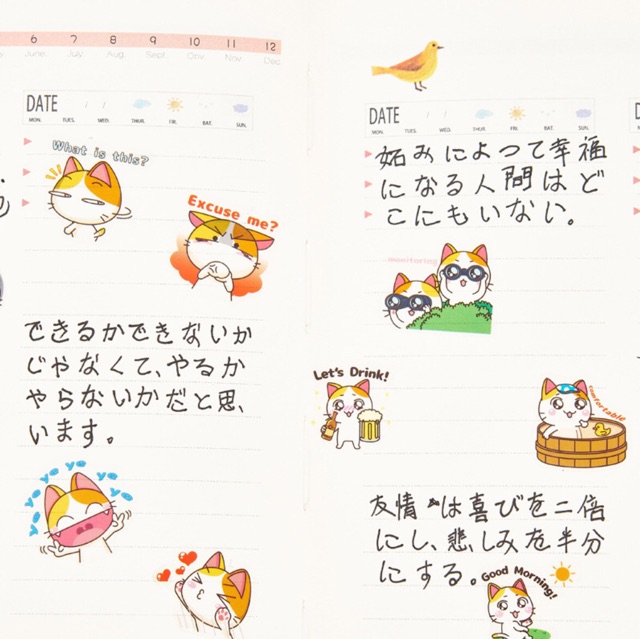 6 7 8 9 10 11 12
June. July. Aug. Sept. Onv Nov. Dec
DATE / /
MON. TUES. WED. THUR. FRI. SAT. SUN.
What is this?
Excuse me?
できるかできないか
じゃなくて、やるか
やらないかだと思
います。
yo yo yo yo yo
DATE / /
MON. TUES. WED. THUR. FRI. SAT. SUN.
妬みによって幸福
になる人間はど
こにもいない。
monitoring
Let's Drink!
comfortable
友情は喜びを二倍
にし、悲しみを半分
にする。
Good Morning!